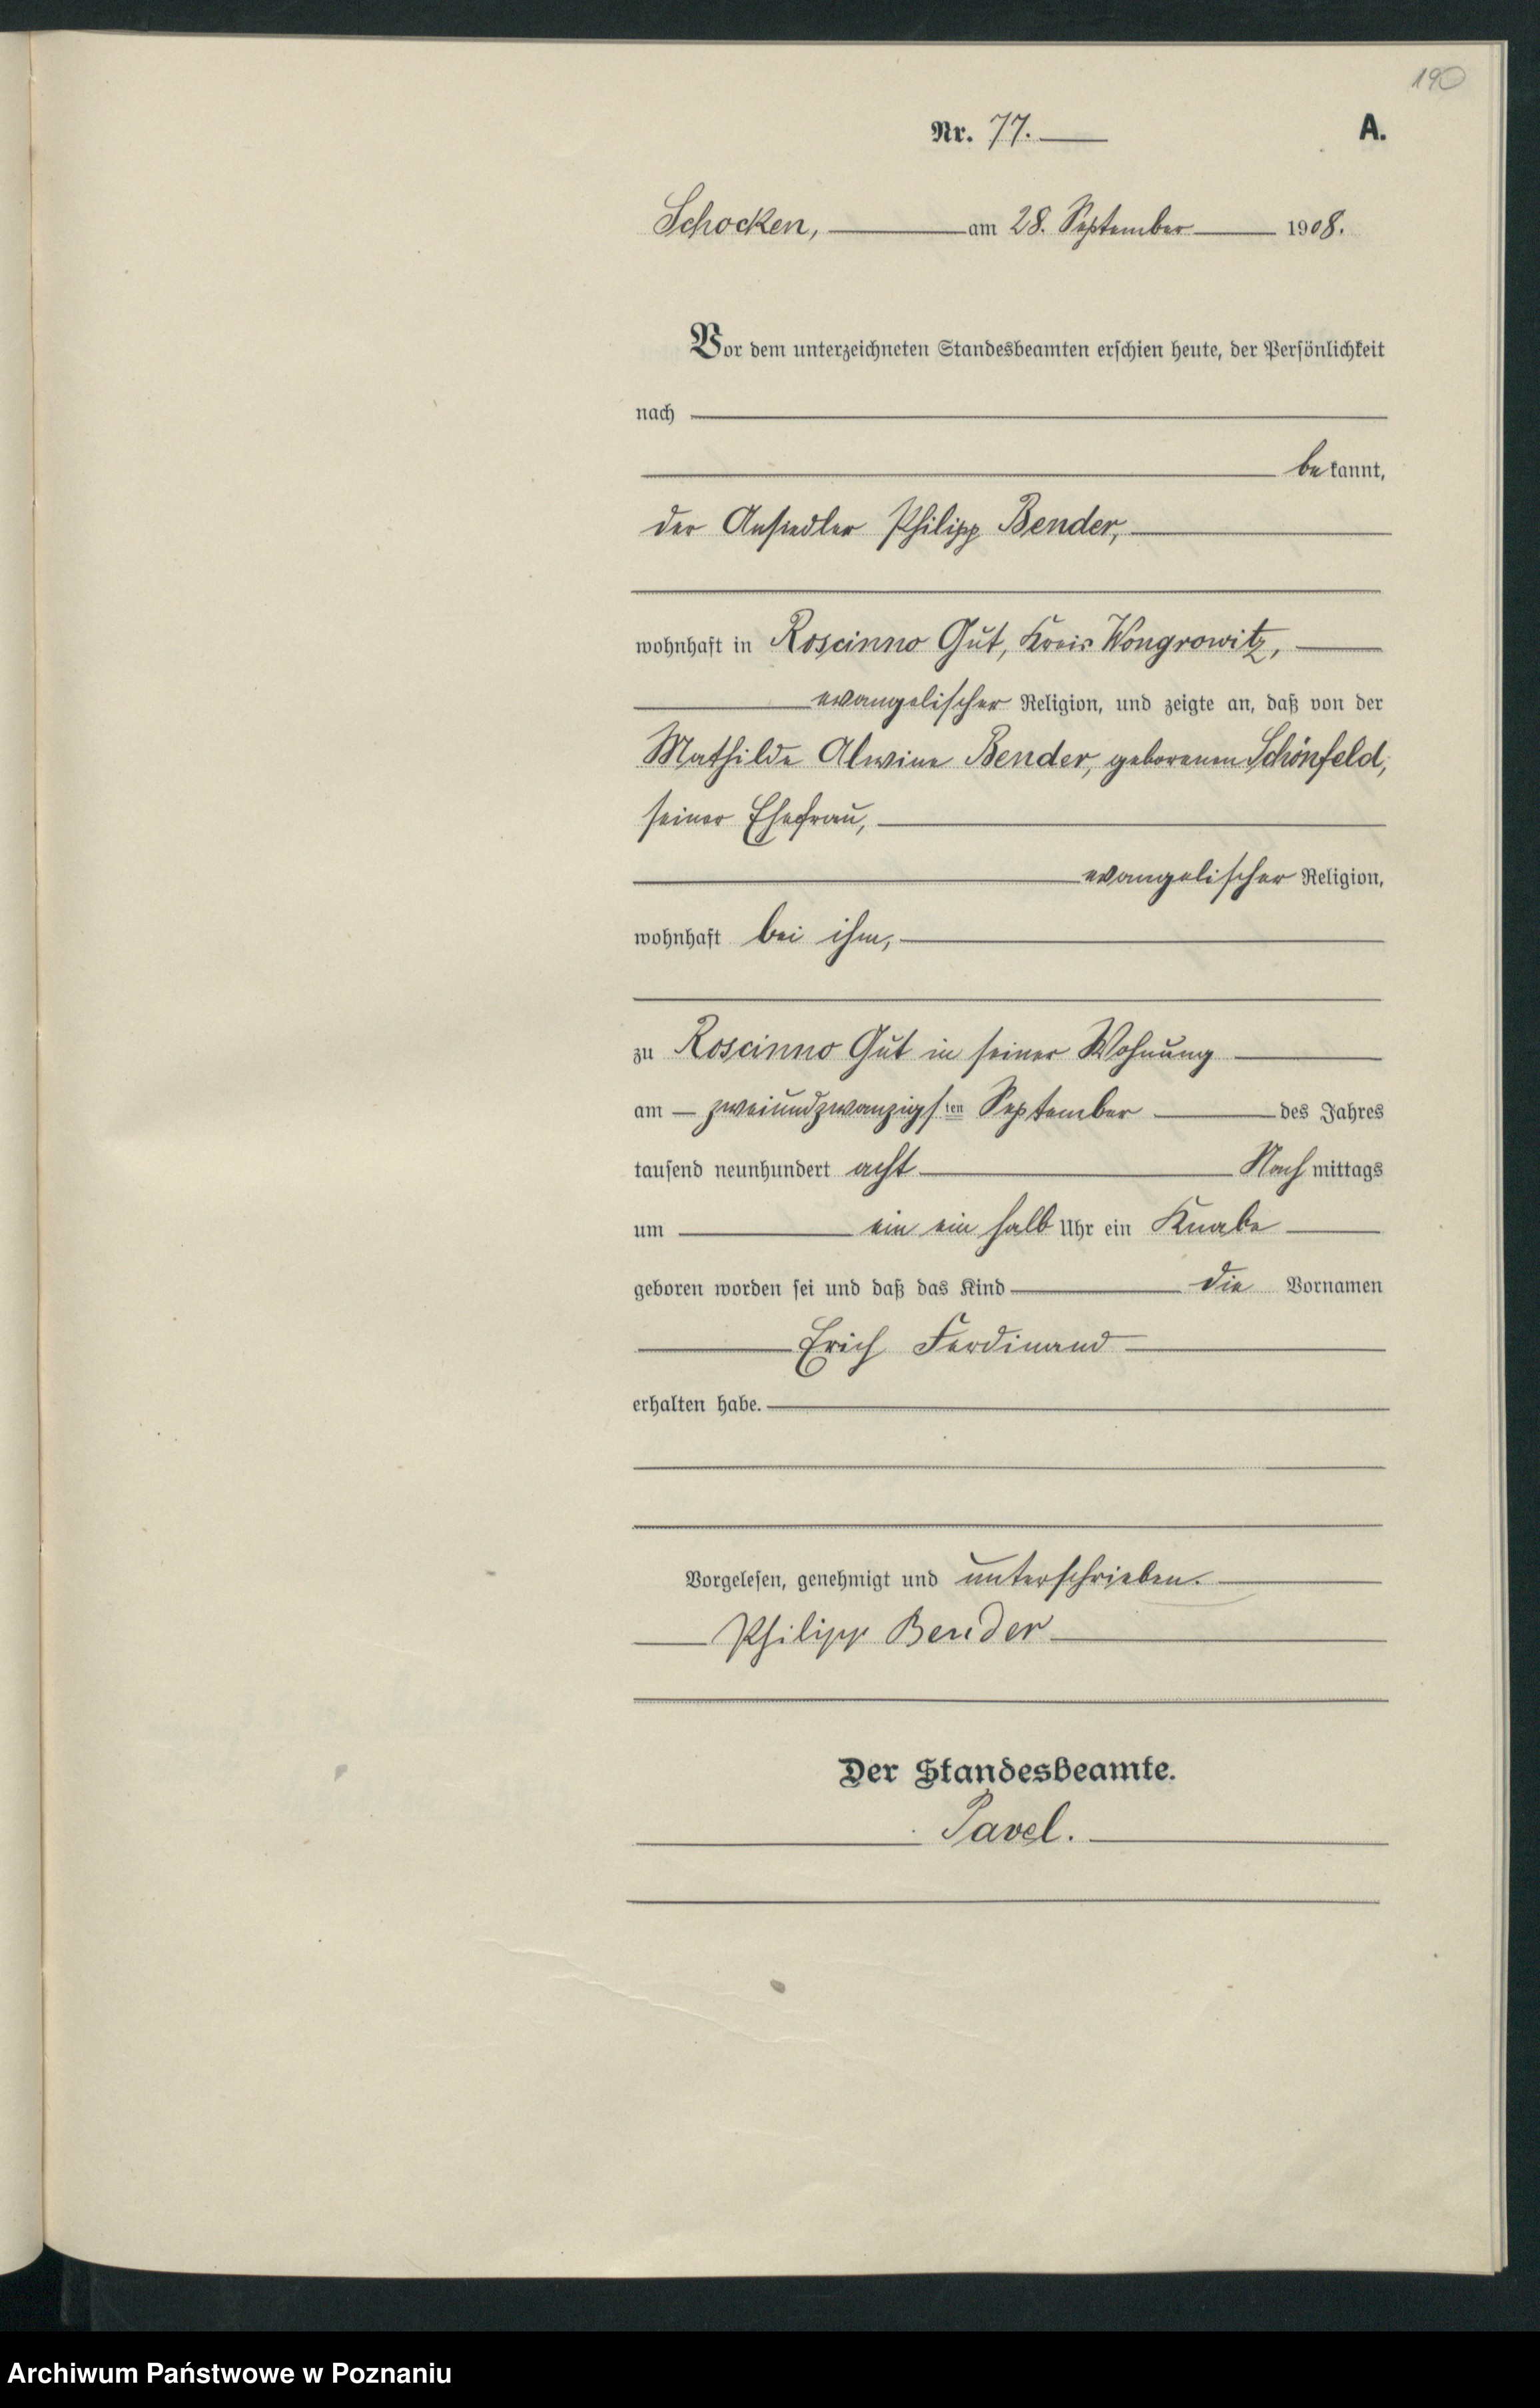 190
Nr. 77. A.
Schocken, am 28. September 1908.
Vor dem unterzeichneten Standesbeamten erschien heute, der Persönlichkeit
nach
bekannt,
der Ansiedler Philipp Bender,
wohnhaft in Roscinno Gut, Kreis Wongrowitz,
evangelischer Religion, und zeigte an, daß von der
Mathilde Alwine Bender, geborenen Schönfeld,
seiner Ehefrau,
evangelischer Religion,
wohnhaft bei ihm,
zu Roscinno Gut in seiner Wohnung
am zweiundzwanzigsten September des Jahres
tausend neunhundert acht Nachmittags
um ein ein halb Uhr ein Knabe
geboren worden sei und daß das Kind die Vornamen
Erich Ferdinand
erhalten habe.
Vorgelesen, genehmigt und unterschrieben.
Philipp Bender
Der Standesbeamte.
Pavel.
Archiwum Państwowe w Poznaniu